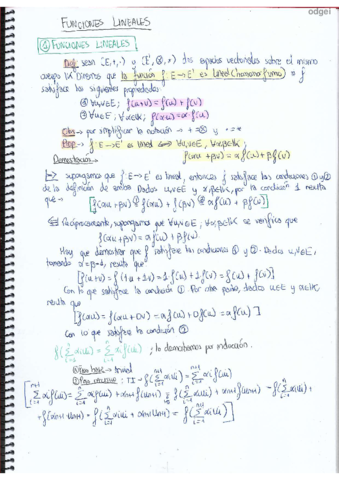 odgei
FUNCIONES LINEALES
① FUNCIONES LINEALES
Def sean (E,+,·) y (E',⊕,∗) dos espacios vectoriales sobre el mismo
cuerpo K. Diremos que la función f: E→E' es lineal (homomorfismo) si f
satisface las siguientes propiedades:
① ∀u,v∈E; f(u+v)=f(u)+f(v)
② ∀u∈E, ∀α∈K; f(αu)=α·f(u)
Obs → por simplificar la notación → + = ⊕ y · = ∗
Prop → f: E→E' es lineal ⟺ ∀u,v∈E, ∀α,β∈K;
Demostración: f(αu + βv) = αf(u) + βf(v)
⇒ supongamos que f: E→E' es lineal, entonces f satisface las condiciones ① y ②
de la definición de Dados u,v∈E y α,β∈K, por la condición 1 resulta
que → [f(αu + βv) = f(αu) + f(βv) = αf(u) + βf(v)]
⇐ Recíprocamente, supongamos que ∀u,v∈E, ∀α,β∈K se verifica que
f(αu + βv) = αf(u) + βf(v)
Hay que demostrar que f satisface las condiciones ① y ②. Dados u,v∈E,
tomando α=β=1, resulta que
[f(u+v) = f(1u + 1v) = 1·f(u) + 1f(v) = f(u) + f(v)]
Con lo que satisface la condición ①. Por otra parte, dados u∈E y α∈K
resulta que
[f(αu) = f(αu + 0v) = αf(u) + 0f(v) = αf(u)]
Con lo que satisface la condición ②
f(∑ αiui) = ∑ αi f(ui) ; lo demostramos por inducción.
① Paso base → trivial
② Paso inductivo: TI = f(∑ αiui) = ∑ αi f(ui)
[∑ αi f(ui) = ∑ αi f(ui) + αn+1 f(un+1) = f(∑ αiui) + αn+1 f(un+1) = f(∑ αiui) +
+ f(αn+1 un+1) = f(∑ αiui + αn+1 un+1) = f(∑ αiui)]